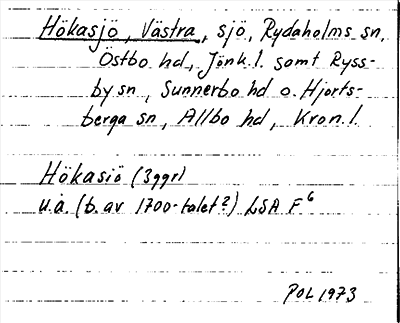 Hökasjö, Västra, sjö, Rydaholms sn,
Östbo hd, Jönk. l. samt Ryss-
by sn, Sunnerbo hd o. Hjorts-
berga sn, Allbo hd, Kron. l.
Hökasiö (3 ggr)
u.å. (b. av 1700-talet?) LSA F6
POL 1973